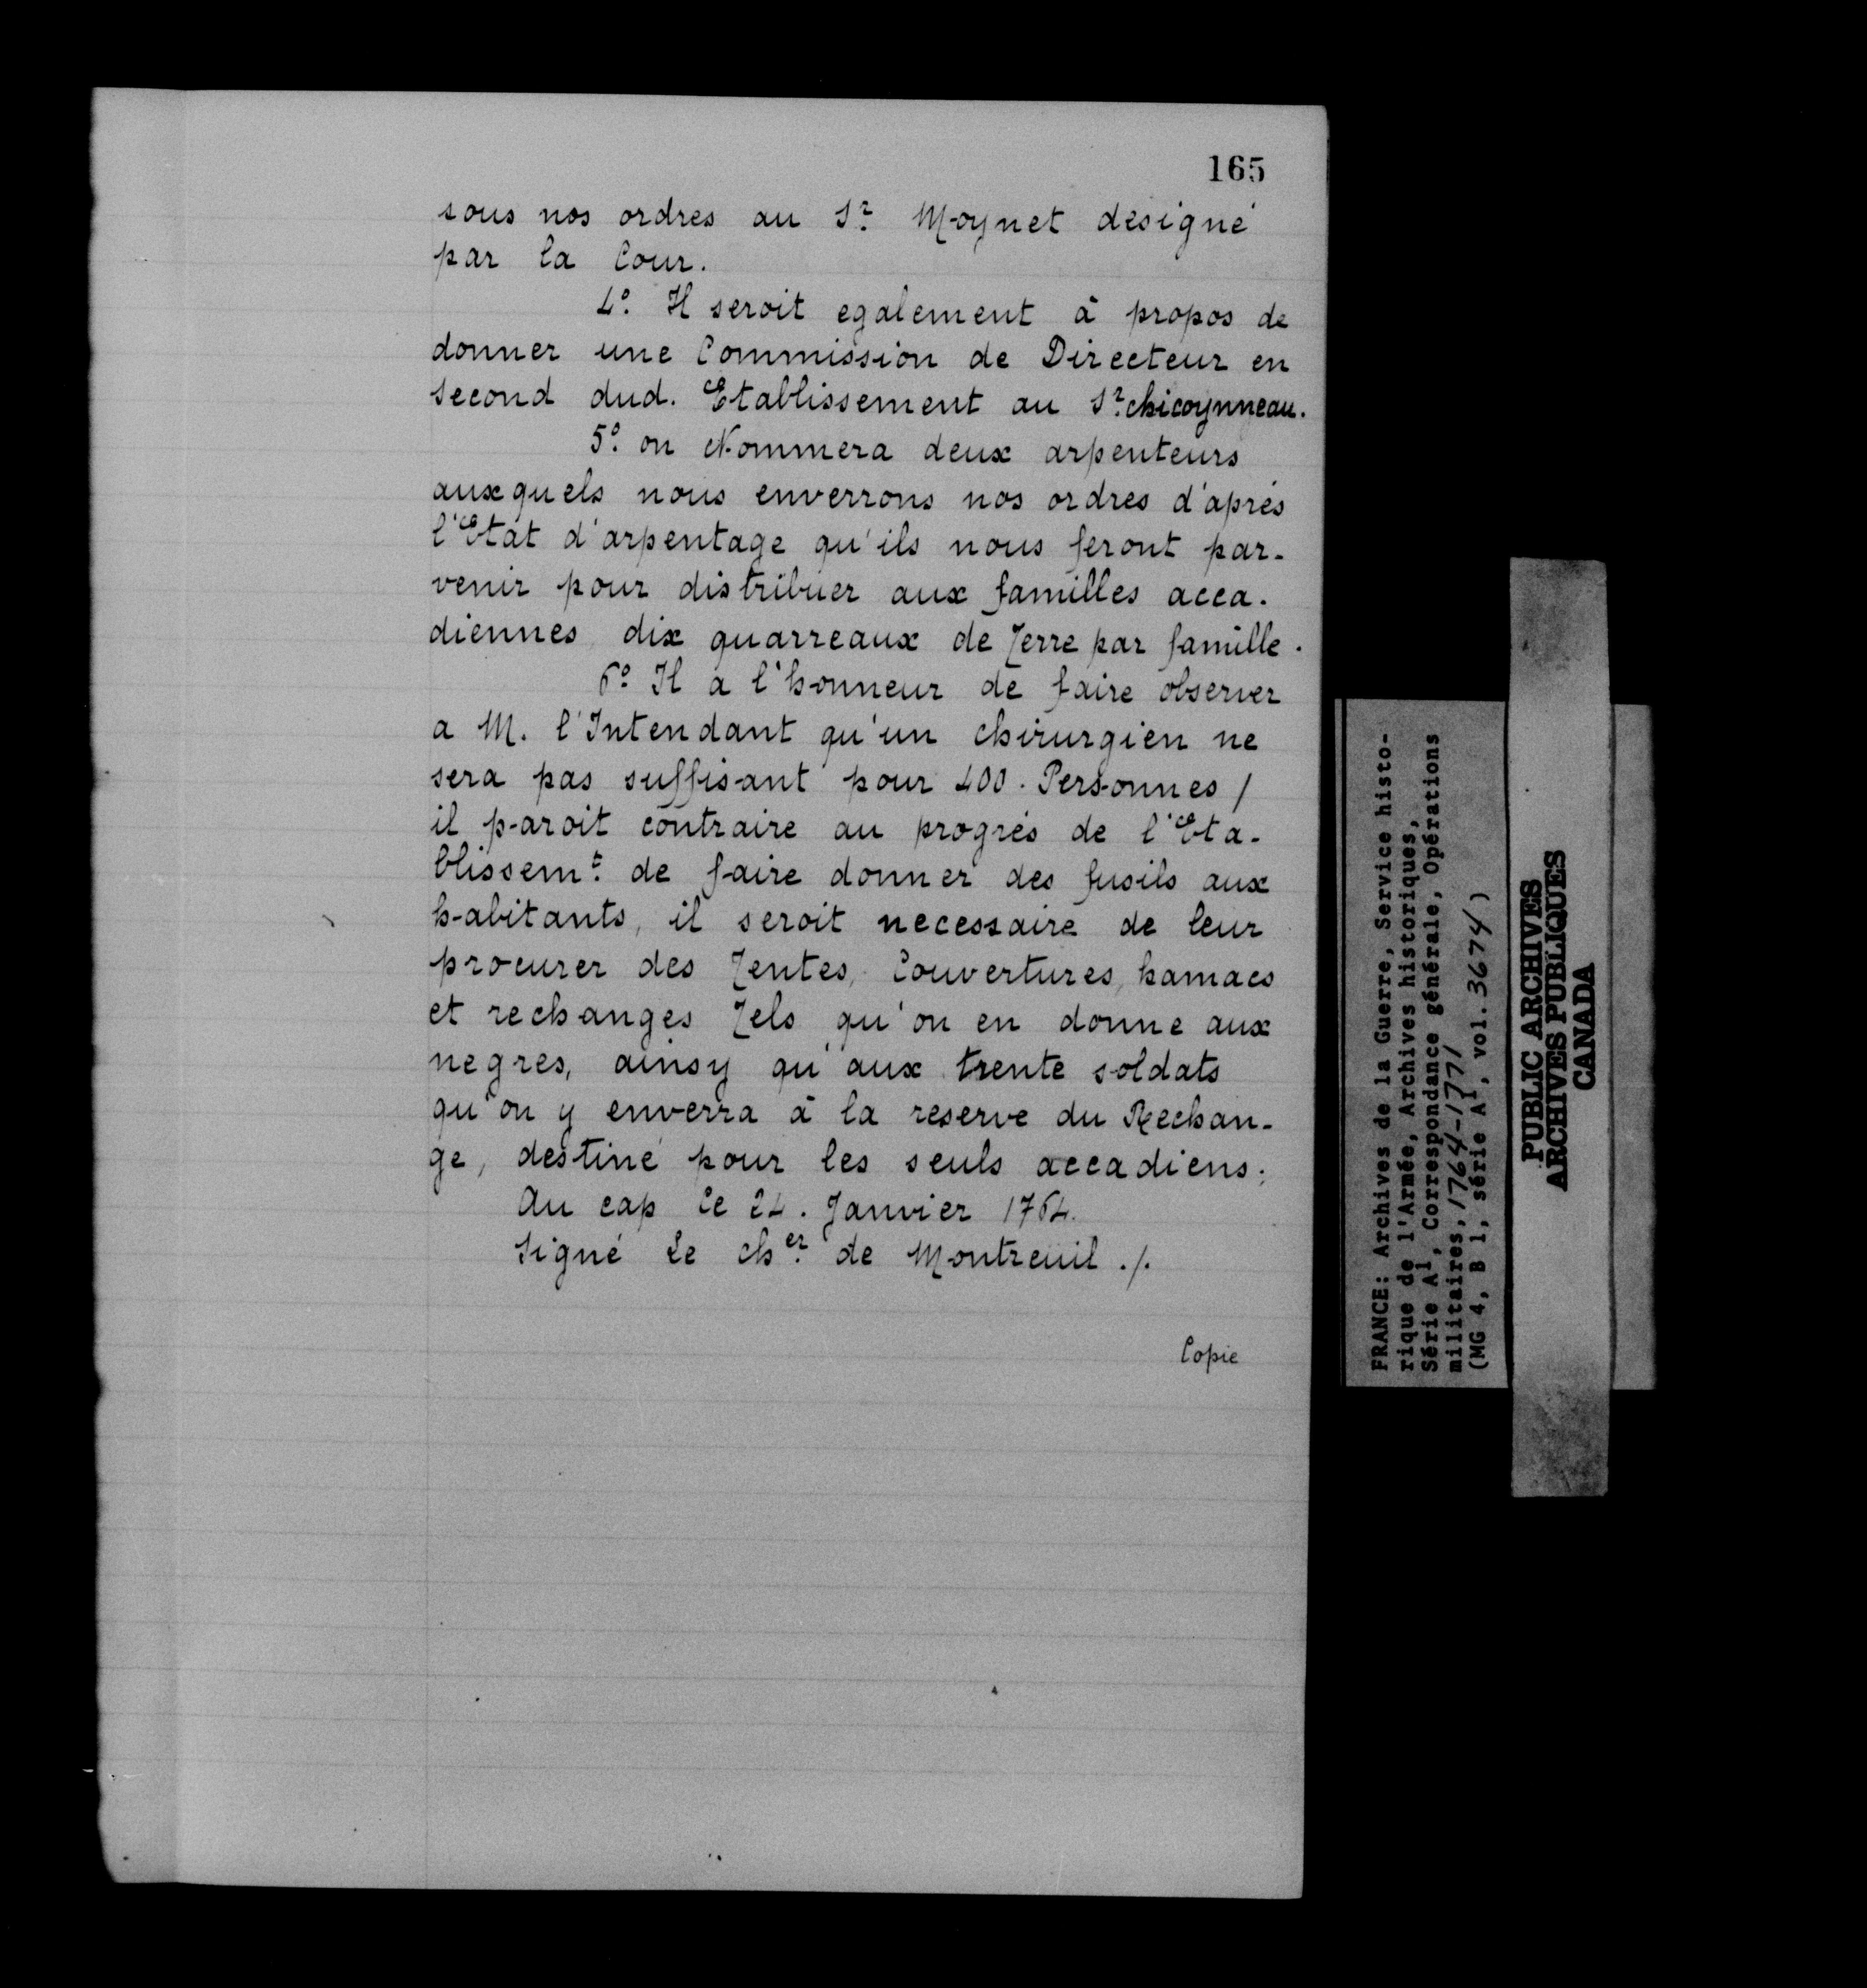 165
sous nos ordres au Sr. Moynet designé
par la Cour.
4º. Il seroit egalement à propos de
donner une Commission de Directeur en
second dud. Etablissement au Sr. chicoynneau.
5º. on Nommera deux arpenteurs
auxquels nous enverrons nos ordres d'aprés
l'Etat d'arpentage qu'ils nous feront par-
venir pour distribuer aux familles acca-
diennes, dix quarreaux de Terre par famille.
6º. Il a l'honneur de faire observer
a M. l'Intendant qu'un chirurgien ne
sera pas suffisant pour 400. Personnes /
il paroit contraire au progrés de l'Eta-
blissemt. de faire donner des fusils aux
habitants, il seroit necessaire de leur
procurer des Tentes, Couvertures, hamacs
et rechanges Tels qu'on en donne aux
negres, ainsy qu'aux trente soldats
qu'on y enverra à la reserve du Rechan-
ge, destiné pour les seuls accadiens;
Au cap Ce 24. Janvier 1764.
Signé Le cher. de Montreuil ./.
Copie
FRANCE: Archives de la Guerre, Service histo-
rique de l'Armée, Archives historiques,
Série A1, Correspondance générale, Opérations
militaires, 1764-1771
(MG 4, B 1, série A1, vol. 3674)
PUBLIC ARCHIVES
ARCHIVES PUBLIQUES
CANADA